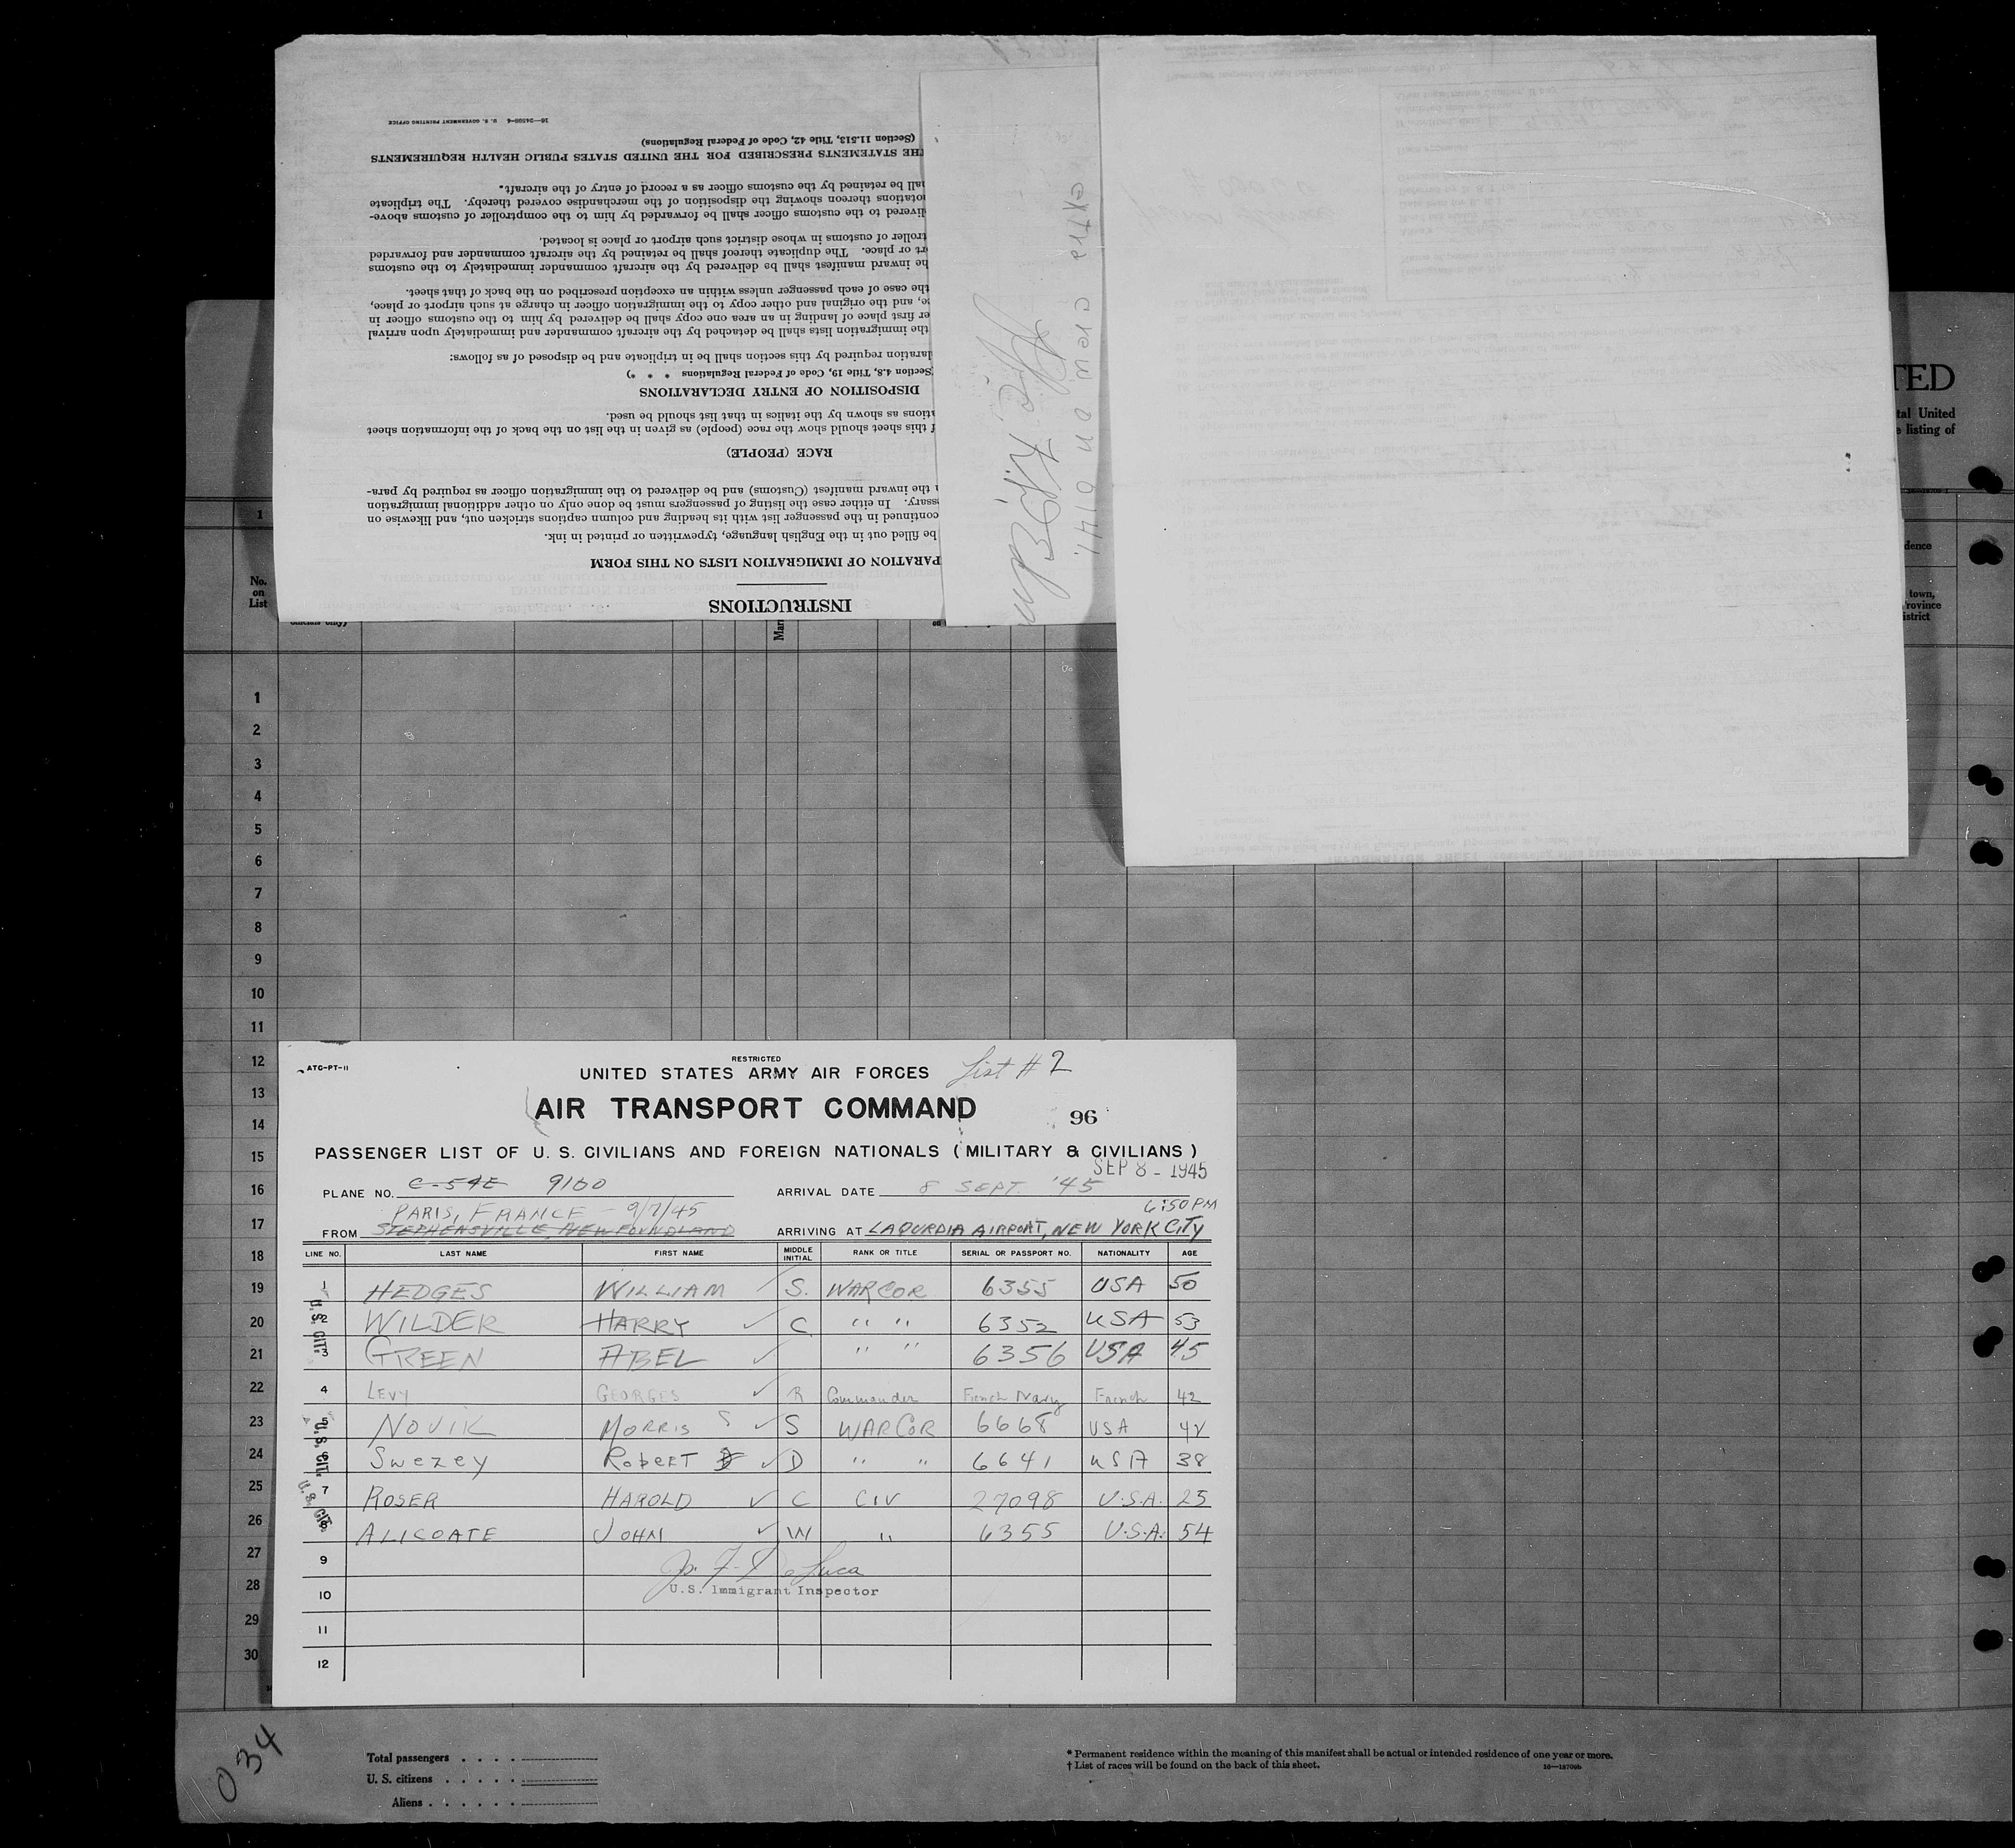 16—24598-4 U. S. GOVERNMENT PRINTING OFFICE
(Section 11.513, Title 42, Code of Federal Regulations)
THE STATEMENTS PRESCRIBED FOR THE UNITED STATES PUBLIC HEALTH REQUIREMENTS
all be retained by the customs officer as a record of entry of the aircraft.
otations thereon showing the disposition of the merchandise covered thereby. The triplicate
livered to the customs officer shall be forwarded by him to the comptroller of customs above-
troller of customs in whose district such airport or place is located.
rt or place. The duplicate thereof shall be retained by the aircraft commander and forwarded
he inward manifest shall be delivered by the aircraft commander immediately to the customs
the case of each passenger unless within an exception prescribed on the back of that sheet.
e, and the original and other copy to the immigration officer in charge at such airport or place,
er first place of landing in an area one copy shall be delivered by him to the customs officer in
the immigration lists shall be detached by the aircraft commander and immediately upon arrival
laration required by this section shall be in triplicate and be disposed of as follows:
(Section 4.8, Title 19, Code of Federal Regulations * * *)
DISPOSITION OF ENTRY DECLARATIONS
ations as shown by the italics in that list should be used.
f this sheet should show the race (people) as given in the list on the back of the information sheet
RACE (PEOPLE)
the inward manifest (Customs) and be delivered to the immigration officer as required by para-
ssary. In either case the listing of passengers must be done only on other additional immigration
continued in the passenger list with its heading and column captions stricken out, and likewise on
be filled out in the English language, typewritten or printed in ink.
PARATION OF IMMIGRATION LISTS ON THIS FORM
INSTRUCTIONS
extra crew on 0141
TED
tal United
e listing of
1
No.
on
List
officials only)
Marr
on
dence
town,
Province
istrict
1
2
3
4
5
6
7
8
9
10
11
12
13
14
15
16
17
18
19
20
21
22
23
24
25
26
27
28
29
30
ATC-PT-11
RESTRICTED
UNITED STATES ARMY AIR FORCES List # 2
AIR TRANSPORT COMMAND 96
PASSENGER LIST OF U. S. CIVILIANS AND FOREIGN NATIONALS ( MILITARY & CIVILIANS )
SEP 8 - 1945
PLANE NO. C-54E 9100 ARRIVAL DATE 8 SEPT. '45
PARIS, FRANCE - 9/7/45 6:50 PM
FROM STEPHENSVILLE, NEWFOUNDLAND ARRIVING AT LAQURDIA AIRPORT, NEW YORK CITY
LINE NO. LAST NAME FIRST NAME MIDDLE INITIAL RANK OR TITLE SERIAL OR PASSPORT NO. NATIONALITY AGE
1 HEDGES WILLIAM S. WARCOR 6355 USA 50
2 WILDER HARRY C " " 6352 USA 53
3 GREEN ABEL " " 6356 USA 45
4 LEVY GEORGES R Commander French Navy French 42
5 NOVIK MORRIS S WARCOR 6668 USA 42
6 Swezey ROBERT D " " 6641 USA 38
7 ROSER HAROLD C CIV 27098 U.S.A. 25
8 ALICOATE JOHN W " 6355 U.S.A. 54
U.S. CIT.
U.S. CIT.
U.S. CIT.
9
U.S. Immigrant Inspector
10
11
12
034
Total passengers . . . .
U. S. citizens . . . . .
Aliens . . . . . .
* Permanent residence within the meaning of this manifest shall be actual or intended residence of one year or more.
† List of races will be found on the back of this sheet.
16—18709b